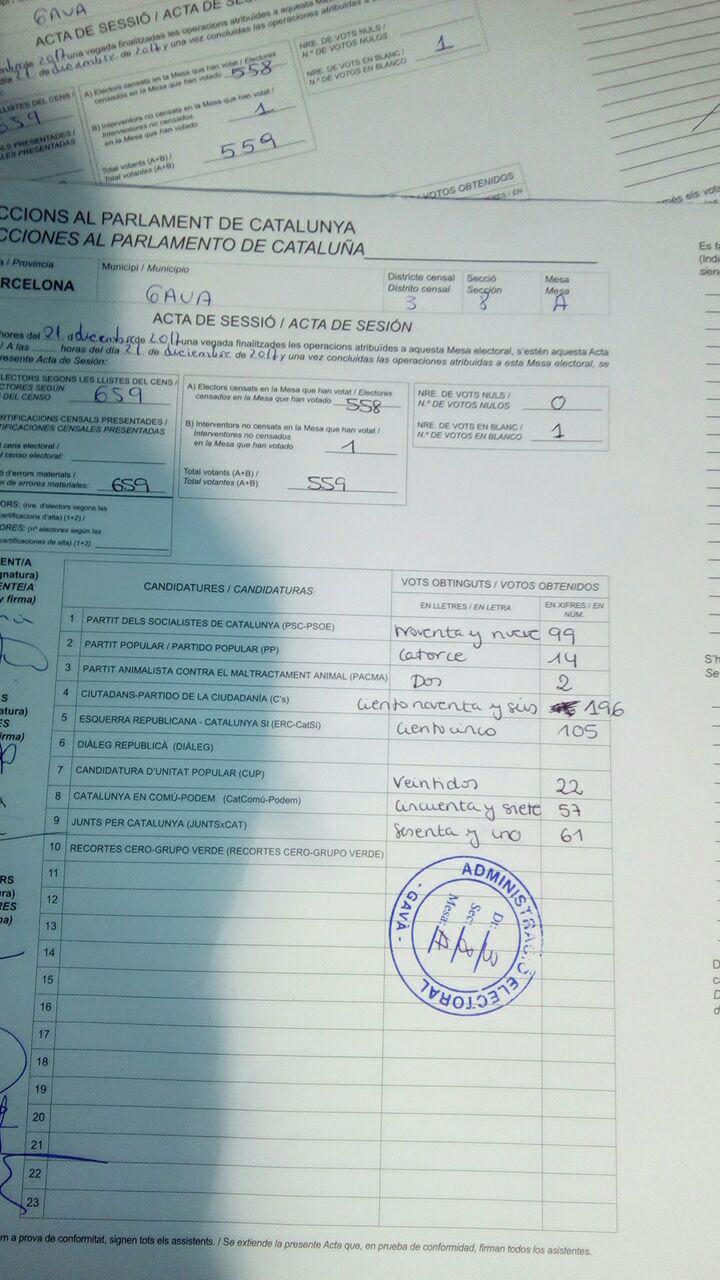 GAVA
ACTA DE SESSIÓ / ACTA DE
de 2017 una vegada finalitzades les operacions atribuïdes a aquesta
día 21 de diciembre de 2017 y una vez concluidas las operaciones atribuidas a esta
LLISTES DEL CENS /
659
A) Electors censats en la Mesa que han votat / Electores
censados en la Mesa que han votado 558
B) Interventors no censats en la Mesa que han votat /
Interventores no censados
en la Mesa que han votado 1
Total votants (A+B) /
Total votantes (A+B) 559
NRE. DE VOTS NULS /
N.º DE VOTOS NULOS
NRE. DE VOTS EN BLANC /
N.º DE VOTOS EN BLANCO 1
PRESENTADES /
LES PRESENTADAS
VOTOS OBTENIDOS
CCIONS AL PARLAMENT DE CATALUNYA
CCIONES AL PARLAMENTO DE CATALUÑA
/ Provincia
RCELONA
Municipi / Municipio
GAVA
Districte censal
Distrito censal
3
Secció
Sección
8
Mesa
Mesa
A
ACTA DE SESSIÓ / ACTA DE SESIÓN
hores del 21 d diciembre de 2017 una vegada finalitzades les operacions atribuïdes a aquesta Mesa electoral, s'estén aquesta Acta
/ A las ........ horas del día 21 de diciembre de 2017 y una vez concluidas las operaciones atribuidas a esta Mesa electoral, se
resente Acta de Sesión:
LECTORS SEGONS LES LLISTES DEL CENS /
CTORES SEGÚN
DEL CENSO 659
RTIFICACIONS CENSALS PRESENTADES /
IFICACIONES CENSALES PRESENTADAS
cens electoral /
l censo electoral:
ó d'errors materials /
n de errores materiales: 659
ORS: (nre. d'electors segons les
certificacions d'alta) (1+2) /
ORES: (nº electores según las
certificaciones de alta) (1+2)
A) Electors censats en la Mesa que han votat / Electores
censados en la Mesa que han votado 558
B) Interventors no censats en la Mesa que han votat /
Interventores no censados
en la Mesa que han votado 1
Total votants (A+B) /
Total votantes (A+B) 559
NRE. DE VOTS NULS /
N.º DE VOTOS NULOS 0
NRE. DE VOTS EN BLANC /
N.º DE VOTOS EN BLANCO 1
ENT/A
gnatura)
ENTE/A
y firma)
CANDIDATURES / CANDIDATURAS
VOTS OBTINGUTS / VOTOS OBTENIDOS
EN LLETRES / EN LETRA
EN XIFRES / EN NÚM.
1 PARTIT DELS SOCIALISTES DE CATALUNYA (PSC-PSOE) noventa y nueve 99
2 PARTIT POPULAR / PARTIDO POPULAR (PP) catorce 14
3 PARTIT ANIMALISTA CONTRA EL MALTRACTAMENT ANIMAL (PACMA) Dos 2
4 CIUTADANS-PARTIDO DE LA CIUDADANÍA (C's) ciento noventa y seis 196
5 ESQUERRA REPUBLICANA - CATALUNYA SI (ERC-CatSí) ciento cinco 105
6 DIÀLEG REPUBLICÀ (DIÀLEG)
7 CANDIDATURA D'UNITAT POPULAR (CUP) Veintidos 22
8 CATALUNYA EN COMÚ-PODEM (CatComú-Podem) cincuenta y siete 57
9 JUNTS PER CATALUNYA (JUNTSxCAT) sesenta y uno 61
10 RECORTES CERO-GRUPO VERDE (RECORTES CERO-GRUPO VERDE)
11
12
13
14
15
16
17
18
19
20
21
22
23
ADMINISTRACIÓ ELECTORAL
- GAVÀ -
Dt: 3
Sec: 8
Mesa: A
m a prova de conformitat, signen tots els assistents. / Se extiende la presente Acta que, en prueba de conformidad, firman todos los asistentes.
Es fa
(Indi
sien
S'h
Se